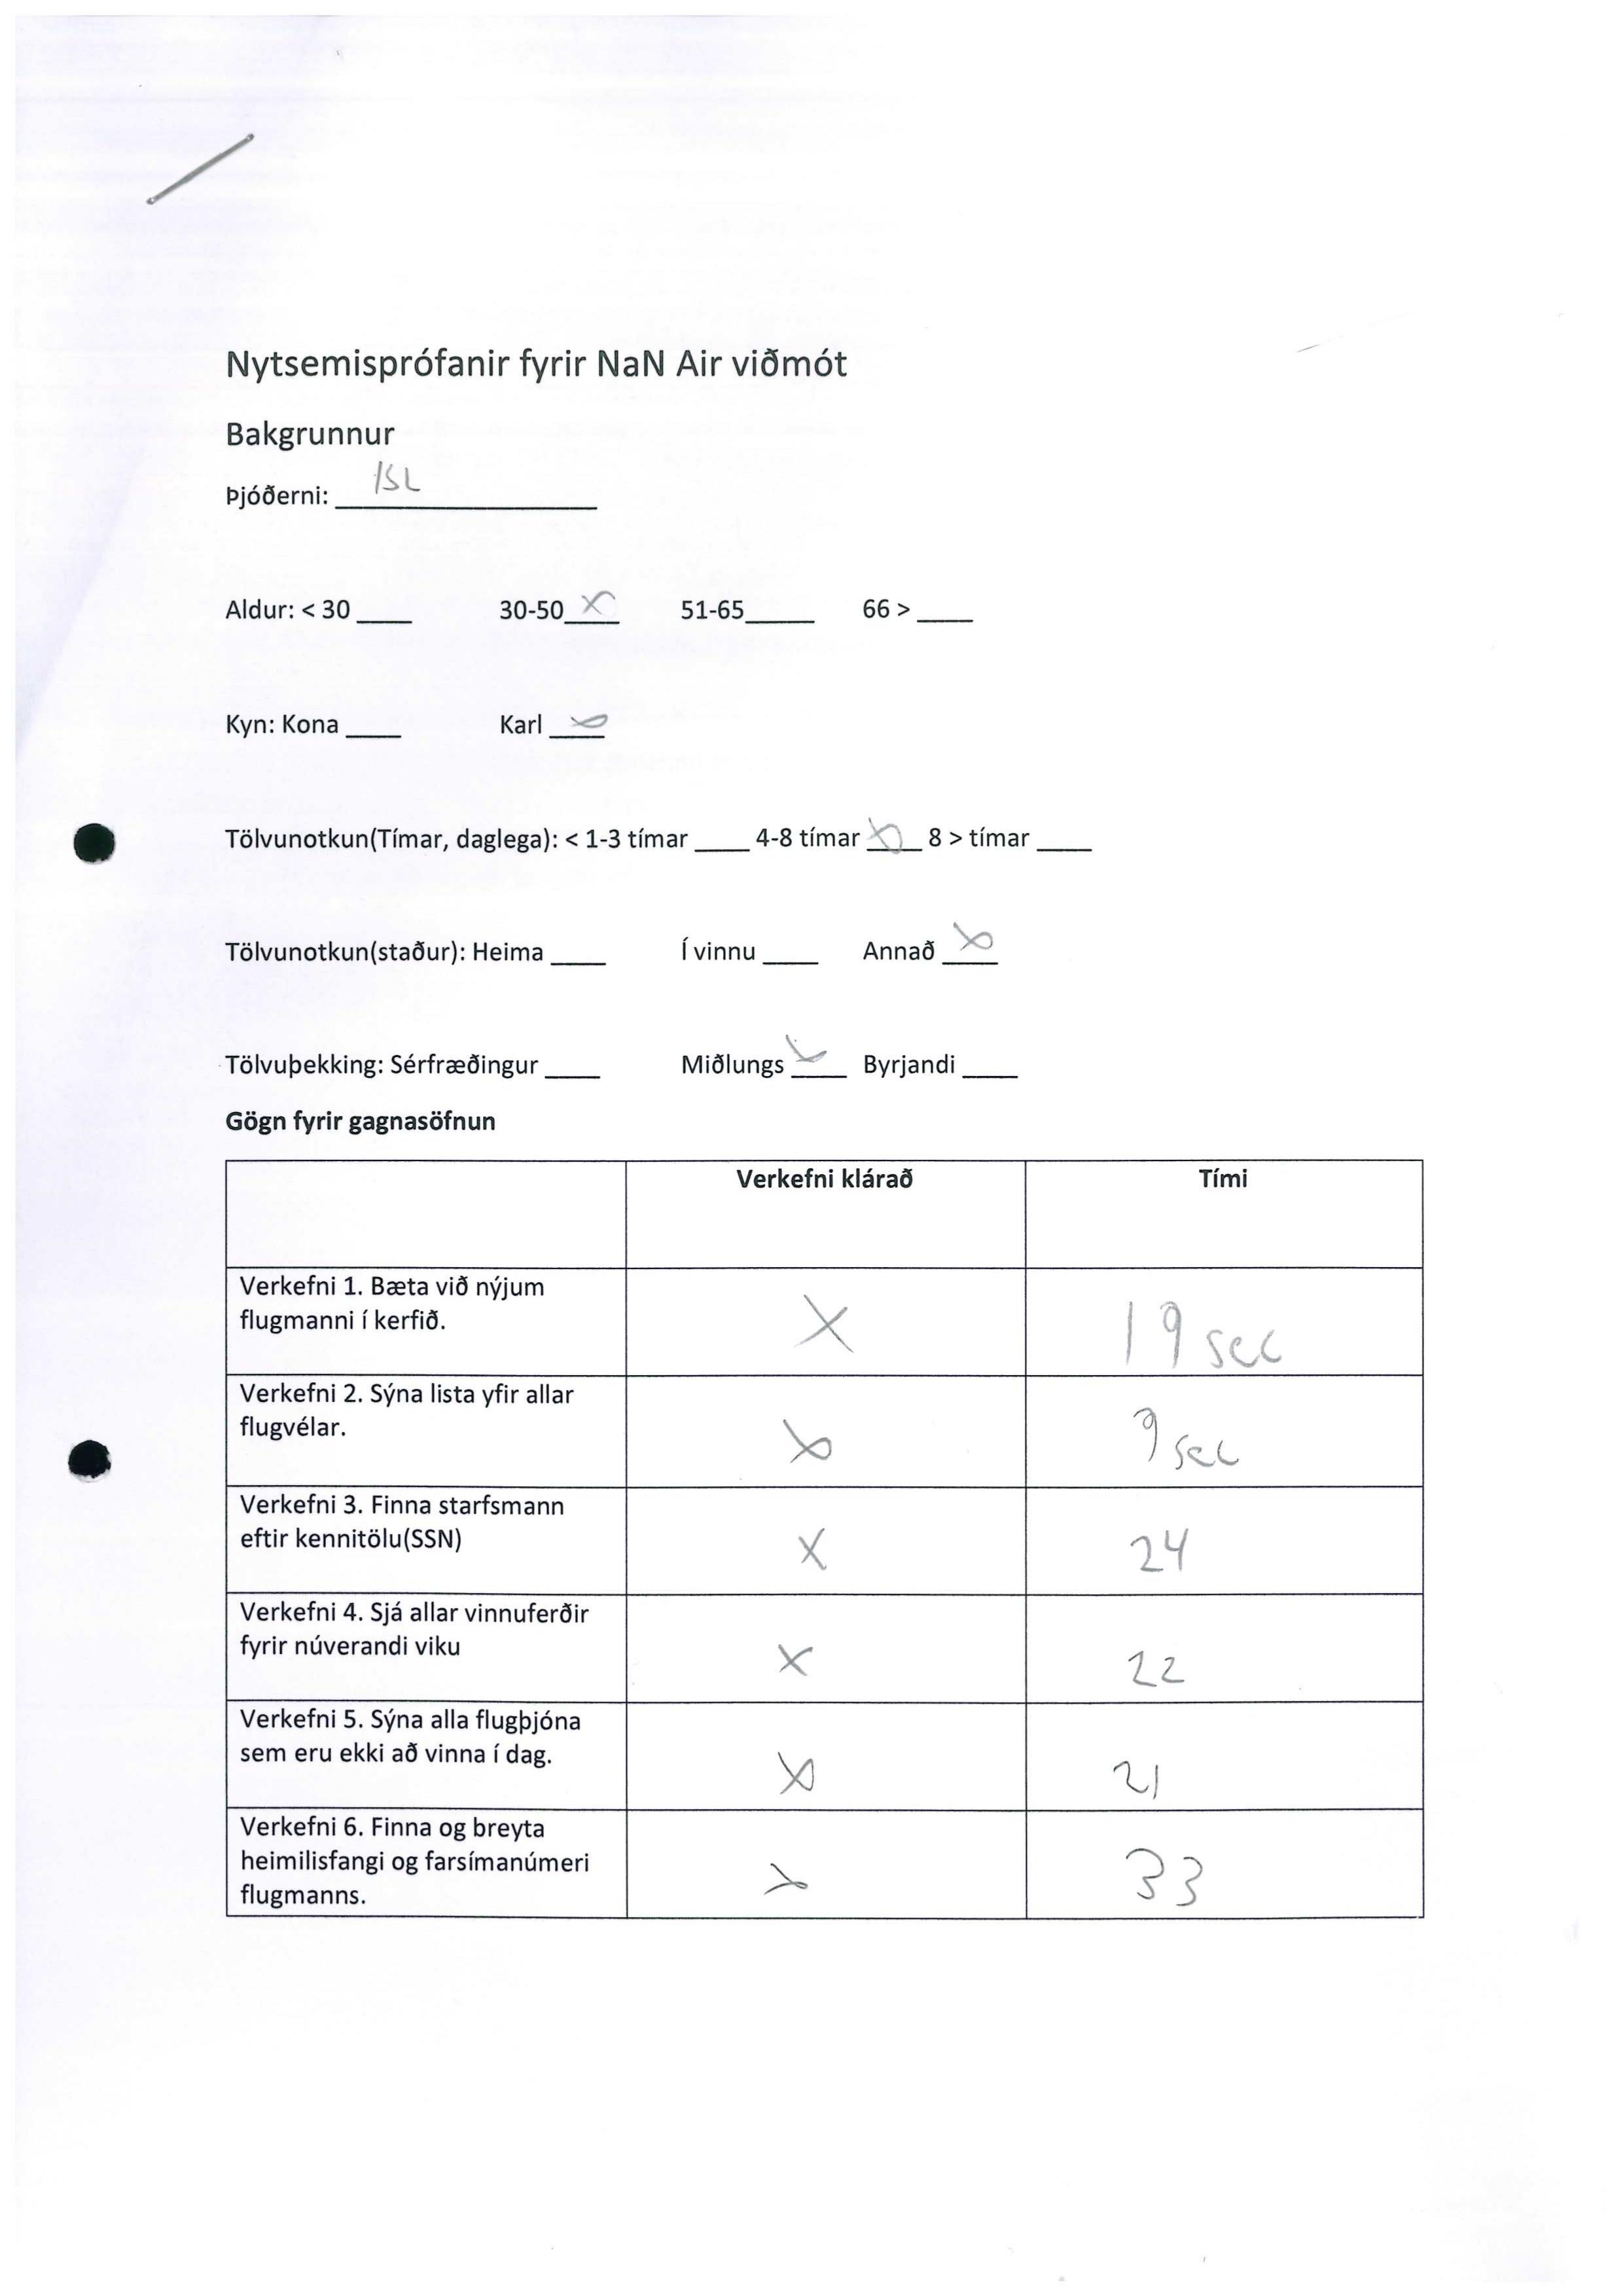 Nytsemisprófanir fyrir NaN Air viðmót
Bakgrunnur
Þjóðerni: ISL
Aldur: < 30 ____ 30-50 X 51-65 ____ 66 > ____
Kyn: Kona ____ Karl X
Tölvunotkun(Tímar, daglega): < 1-3 tímar ____ 4-8 tímar X 8 > tímar ____
Tölvunotkun(staður): Heima ____ Í vinnu ____ Annað X
Tölvuþekking: Sérfræðingur ____ Miðlungs X Byrjandi ____
Gögn fyrir gagnasöfnun
Verkefni klárað Tími
Verkefni 1. Bæta við nýjum
flugmanni í kerfið. X 19 sec
Verkefni 2. Sýna lista yfir allar
flugvélar. X 9 sec
Verkefni 3. Finna starfsmann
eftir kennitölu(SSN) X 24
Verkefni 4. Sjá allar vinnuferðir
fyrir núverandi viku X 22
Verkefni 5. Sýna alla flugþjóna
sem eru ekki að vinna í dag. X 21
Verkefni 6. Finna og breyta
heimilisfangi og farsímanúmeri X 33
flugmanns.